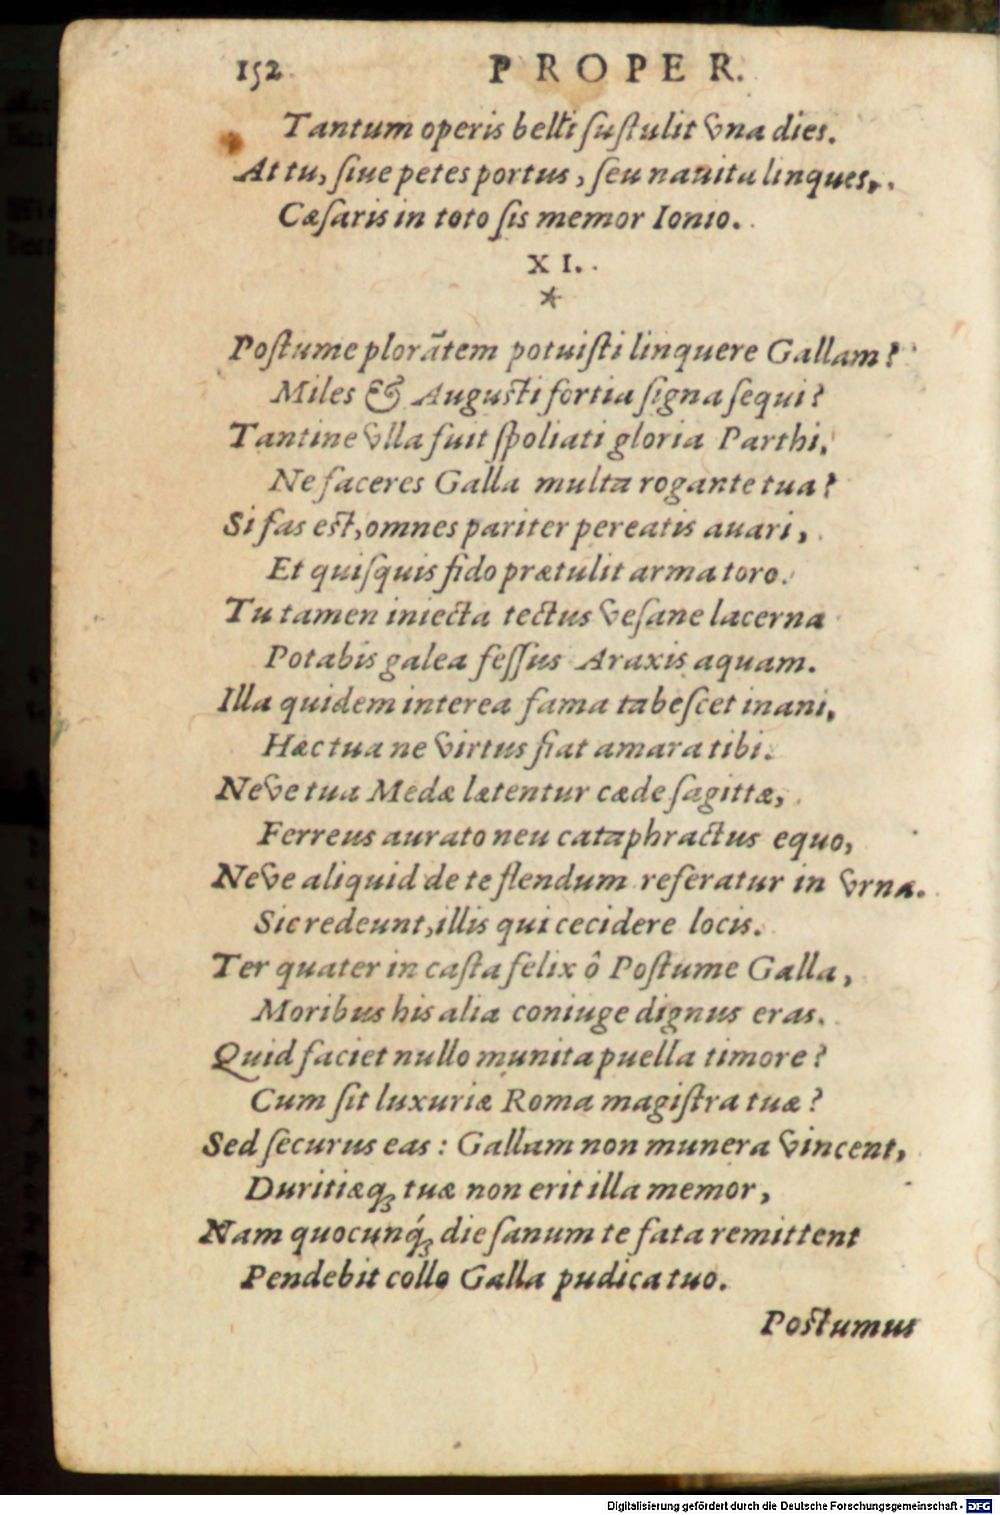 152 PROPER.
Tantum operis belli ſuſtulit vna dies.
At tu, ſiue petes portus, ſeu nauita linques,
Cæſaris in toto ſis memor Ionio.
XI.
*
Poſtume plorātem potuiſti linquere Gallam?
Miles & Auguſti fortia ſigna ſequi?
Tantine vlla fuit ſpoliati gloria Parthi,
Ne faceres Galla multa rogante tua?
Si fas eſt, omnes pariter pereatis auari,
Et quiſquis fido prætulit arma toro.
Tu tamen iniecta tectus veſane lacerna
Potabis galea feſſus Araxis aquam.
Illa quidem interea fama tabeſcet inani,
Hæc tua ne virtus fiat amara tibi.
Neve tua Medæ lætentur cæde ſagittæ,
Ferreus aurato neu cataphractus equo,
Neve aliquid de te flendum referatur in vrna.
Sic redeunt, illis qui cecidere locis.
Ter quater in caſta felix ô Poſtume Galla,
Moribus his alia coniuge dignus eras.
Quid faciet nullo munita puella timore?
Cum ſit luxuriæ Roma magiſtra tuæ?
Sed ſecurus eas: Gallam non munera vincent,
Duritiæq; tuæ non erit illa memor,
Nam quocunq́; die ſanum te fata remittent
Pendebit collo Galla pudica tuo.
Poſtumus
Digitalisierung gefördert durch die Deutsche Forschungsgemeinschaft - DFG